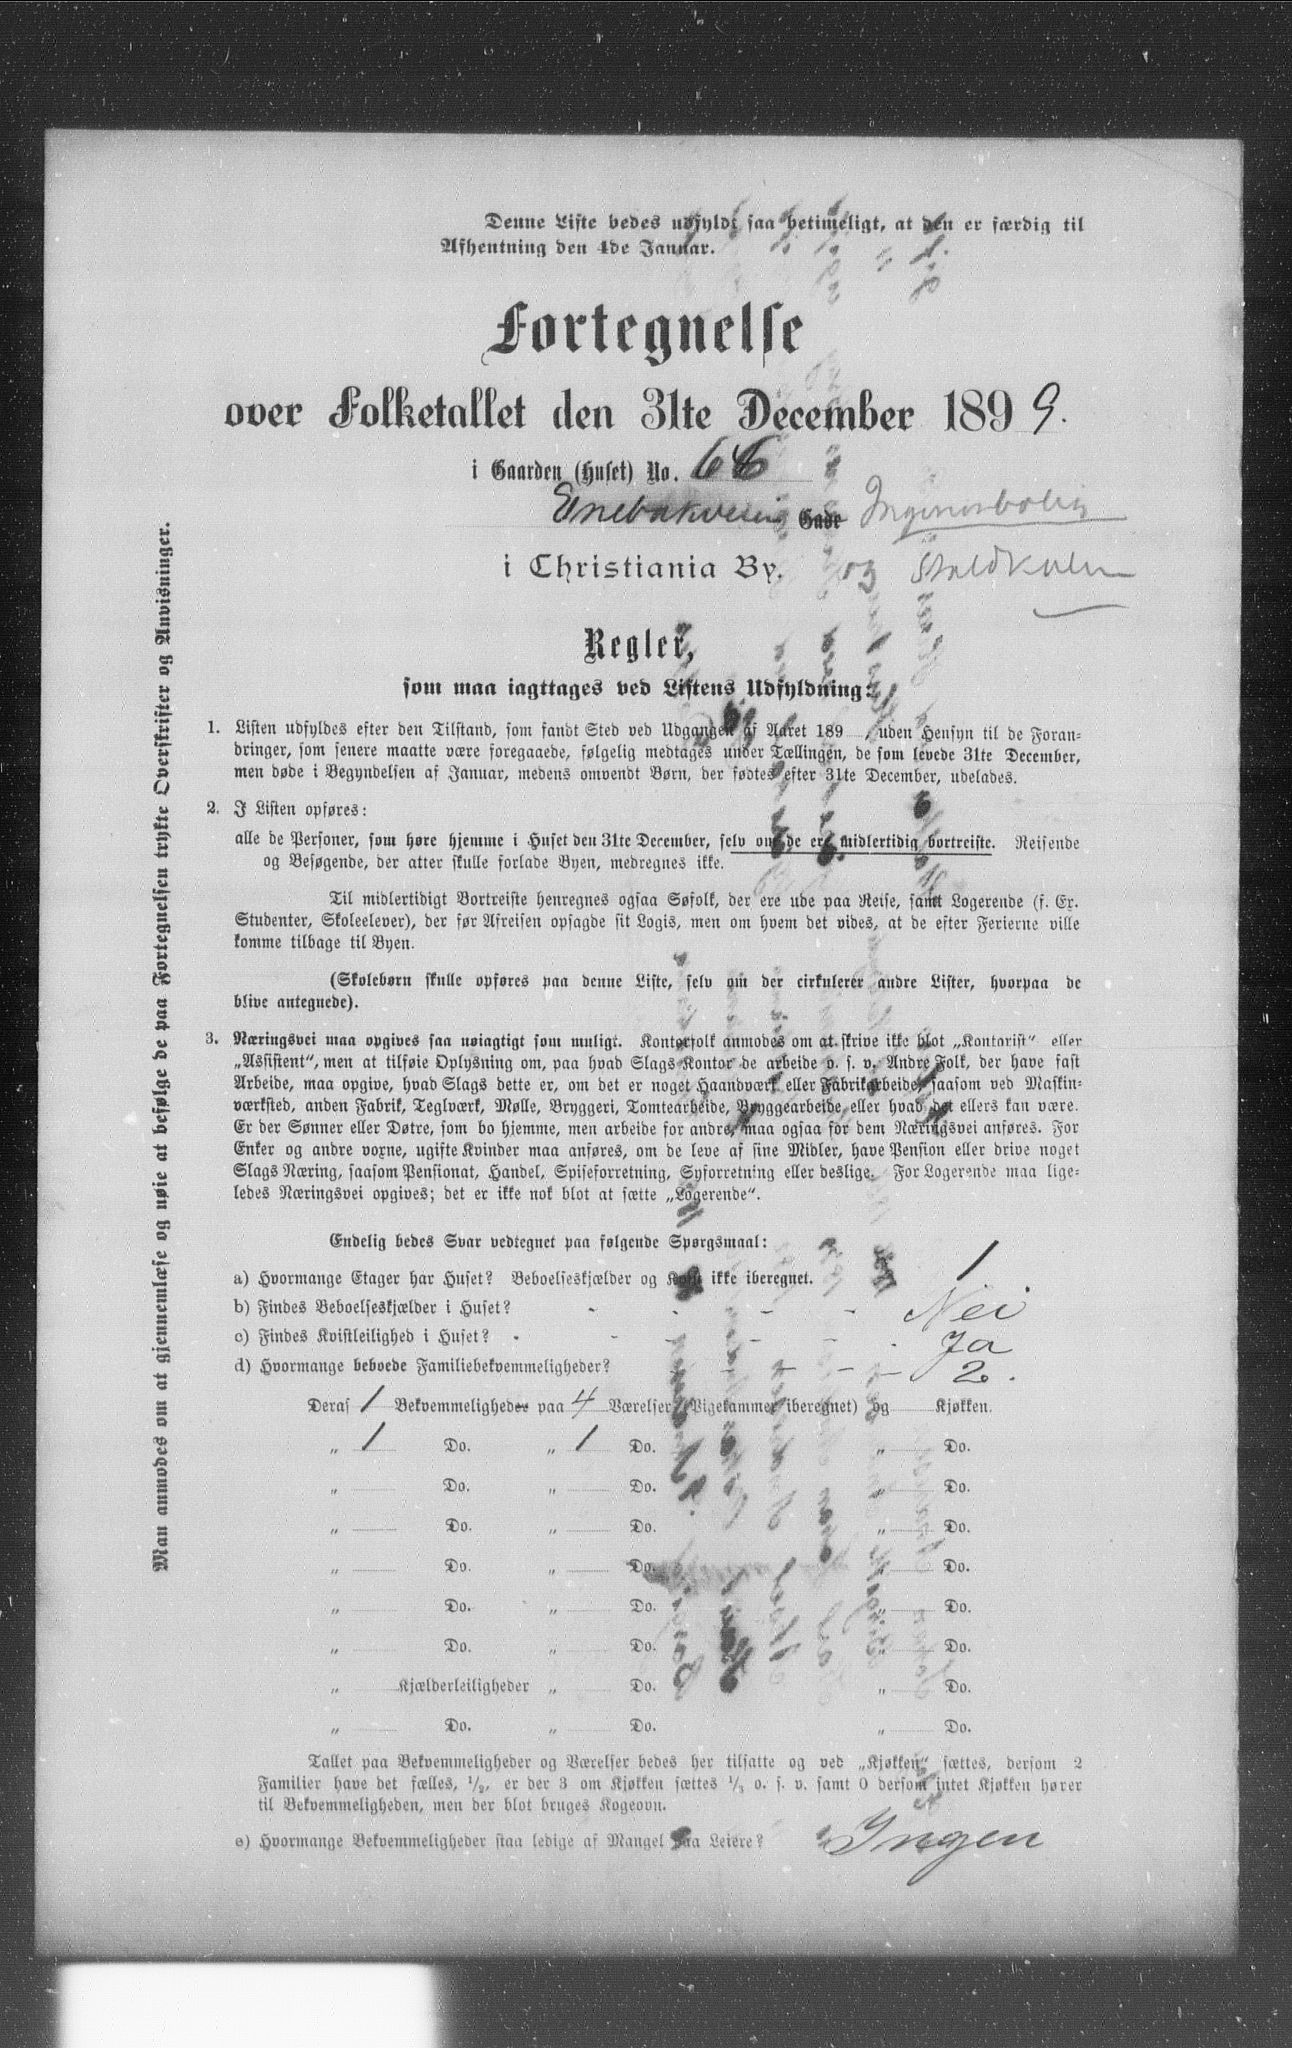 Denne Liste bedes udfyldt saa betimeligt, at den er færdig til
Afhentning den 4de Januar.
Fortegnelse
over Folketallet den 31te December 1899.
i Gaarden (Huset) No. 66
Enebakveien Gade Ingeniørbolig
i Christiania By. og
Regler,
som maa iagttages ved Listens Udfyldning:
1. Listen udfyldes efter den Tilstand, som fandt Sted ved Udgangen af Aaret 189 , uden Hensyn til de Foran-
dringer, som senere maatte være foregaaede, følgelig medtages under Tællingen, de som levede 31te December,
men døde i Begyndelsen af Januar, medens omvendt Børn, der fødtes efter 31te December, udelades.
2. I Listen opføres:
alle de Personer, som høre hjemme i Huset den 31te December, selv om de er midlertidig bortreiste. Reisende
og Besøgende, der atter skulle forlade Byen, medregnes ikke.
Til midlertidigt Bortreiste henregnes ogsaa Søfolk, der ere ude paa Reise, samt Logerende (f. Ex.
Studenter, Skoleelever), der før Afreisen opsagde sit Logis, men om hvem det vides, at de efter Ferierne ville
komme tilbage til Byen.
(Skolebørn skulle opføres paa denne Liste, selv om der cirkulerer andre Lister, hvorpaa de
blive antegnede).
3. Næringsvei maa opgives saa nøiagtigt som muligt. Kontorfolk anmodes om at skrive ikke blot „Kontorist“ eller
„Assistent“, men at tilføie Oplysning om, paa hvad Slags Kontor de arbeide o. s. v. Andre Folk, der have fast
Arbeide, maa opgive, hvad Slags dette er, om det er noget Haandværk eller Fabrikarbeide, saasom ved Maskin-
værksted, anden Fabrik, Teglværk, Mølle, Bryggeri, Tomtearbeide, Bryggearbeide eller hvad det ellers kan være.
Er der Sønner eller Døtre, som bo hjemme, men arbeide for andre, maa ogsaa for dem Næringsvei anføres. For
Enker og andre vorne, ugifte Kvinder maa anføres, om de leve af sine Midler, have Pension eller drive noget
Slags Næring, saasom Pensionat, Handel, Spiseforretning, Syforretning eller deslige. For Logerende maa lige-
ledes Næringsvei opgives; det er ikke nok blot at sætte „Logerende“.
Endelig bedes Svar vedtegnet paa følgende Spørgsmaal:
a) Hvormange Etager har Huset? Beboelseskjælder og Kvist ikke iberegnet. 1
b) Findes Beboelseskjælder i Huset? Nei
c) Findes Kvistleilighed i Huset? Ja
d) Hvormange beboede Familiebekvemmeligheder? 2.
Deraf 1 Bekvemmeligheder paa 4 Værelser (Pigekammer iberegnet) og Kjøkken.
„ 1 Do. „ 1 Do. „ Do.
„ Do. „ Do. „ Do.
„ Do. „ Do. „ Do.
„ Do. „ Do. „ Do.
„ Do. „ Do. „ Do.
„ Do. „ Do. „ Do.
„ Kjælderleiligheder „ Do. „ Do.
„ Do. „ Do. „ Do.
Tallet paa Bekvemmeligheder og Værelser bedes her tilsatte og ved „Kjøkken“ sættes, dersom 2
Familier have det fælles, 1/2, er der 3 om Kjøkken sættes 1/3 o. s. v. samt 0 dersom intet Kjøkken hører
til Bekvemmeligheden, men der blot bruges Kogeovn.
e) Hvormange Bekvemmeligheder staa ledige af Mangel paa Leiere? Ingen
Man anmodes om at gjennemlæse og nøie at befølge de paa Fortegnelsen trykte Overskrifter og Anvisninger.